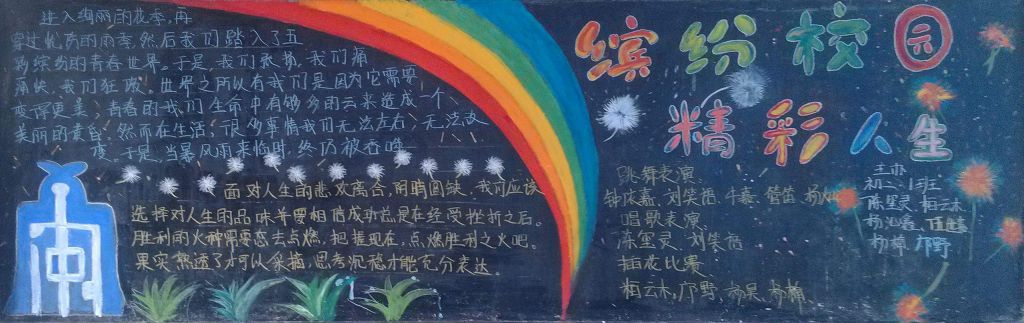 进入绚丽的夜季,再
穿过忧伤的雨季,然后我们踏入了五
彩缤纷的青春世界。于是,我们歌,我们痛
痛快,我们狂放。世界之所以有我们是因为它需要
变得更美;青春的我们生命中有够多的云来造成一个
美丽的黄昏。然而在生活,很多事情我们无法左右,无法改
变。于是,当暴风雨来临时,终仍被吞噬
面对人生的悲欢离合,阴晴圆缺,我们应该
选择对人生的品味并要相信成功总是在经受挫折之后。
胜利的火种需要态去点燃,把握现在,点燃胜利之火吧。
果实熟透了才可以采摘,思考沉稳才能充分表达。
缤纷校园
精彩人生
跳舞表演
钟庆嘉,刘笑蓓,牛嘉,管笛,杨
唱歌表演
陈星灵,刘笑蓓
插花比赛
梅云木,邝野,杨果,杨楠
主办
初二、1班
陈星灵 梅云木
杨 嘉
杨楠 邝野